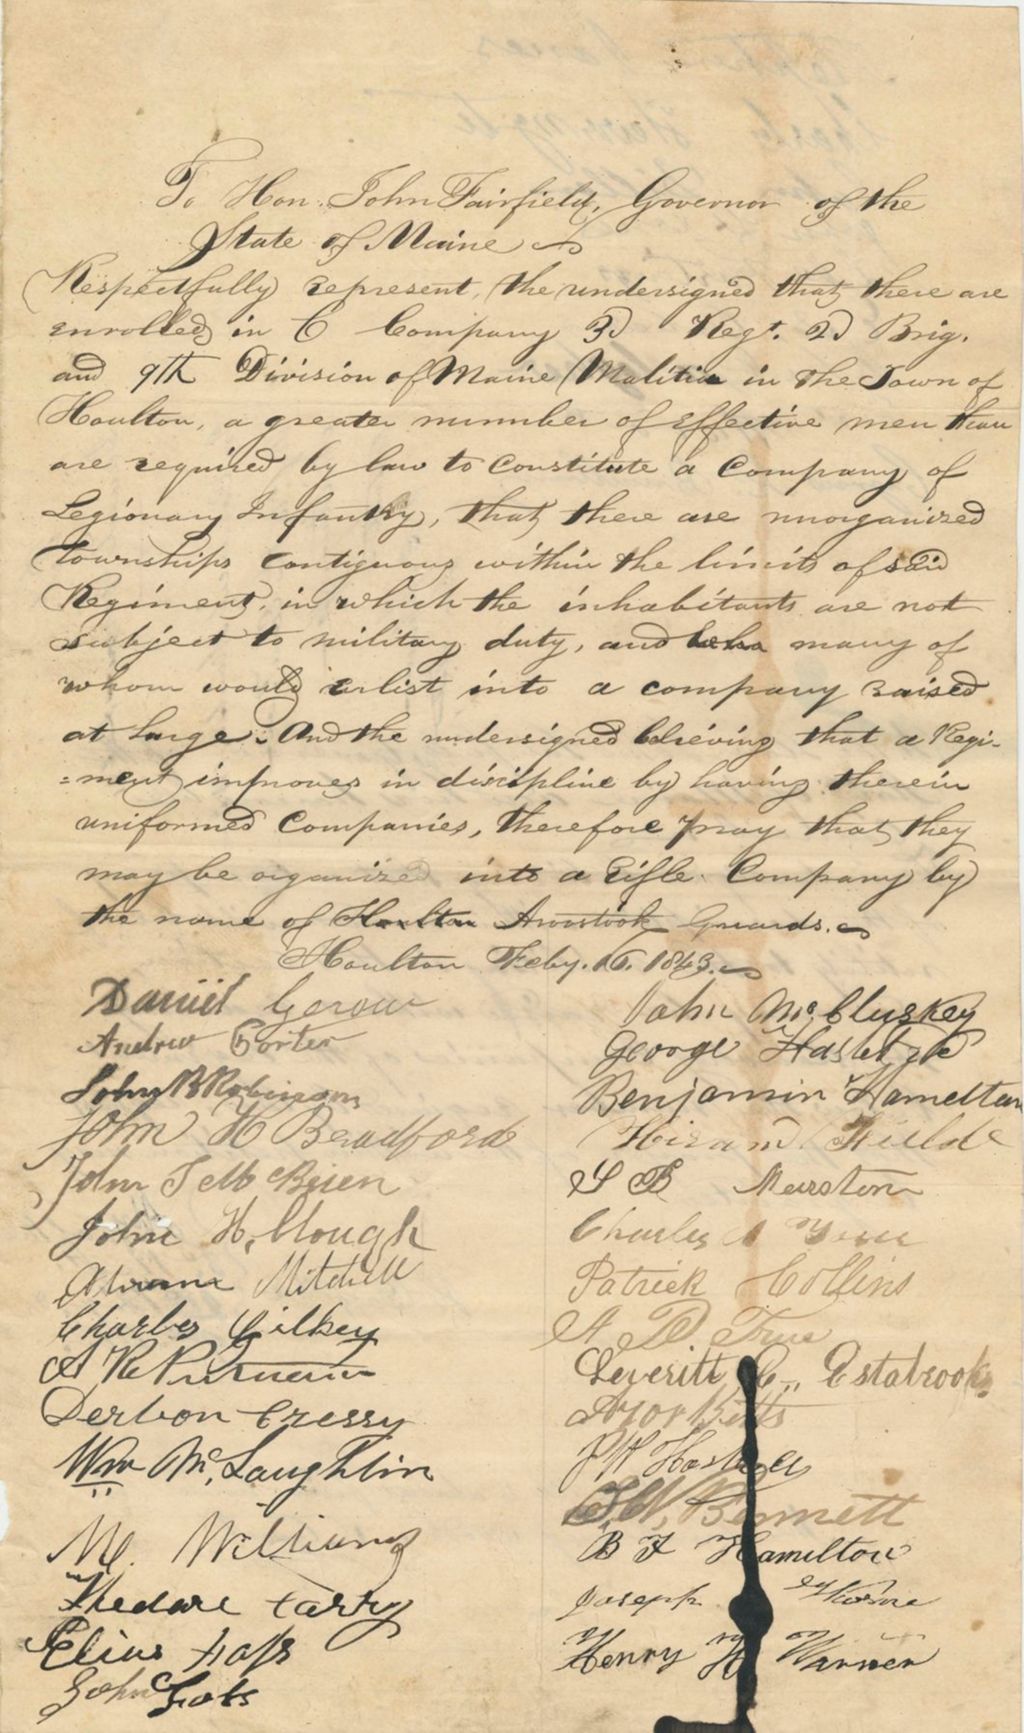 To Hon. John Fairfield, Governor of the
State of Maine
Respectfully represent, the undersigned that there are
enrolled in C Company 3d Regt. 2d Brig.
and 9th Division of Maine Malitia in the Town of
Houlton, a greater number of effective men than
are required by law to constitute a Company of
Legionary Infantry, that there are unorganized
townships contiguous within the limits of said
Regiment, in which the inhabitants are not
subject to military duty, and many of
whom would enlist into a company raised
at large. And the undersigned believing that a Regi-
=ment improves in discipline by having therein
uniformed Companies, therefore pray that they
may be organized into a Rifle Company by
the name of Houlton Aroostook Guards.
Houlton Feby. 16. 1843.
Daniel Gerow
Andrew Porter
John B Robinson
John H Bradford
John T Mc Brien
John H. Clough
Mitchell
Charles Gilkey
A K Putnam
Derbon Cressy
Wm Mc. Laughlin
M. Williams
Thedore Carry
Elias
John
John Mc. Cluskey
George
Benjamin Hameltan
Hiram
S B Marston
Charles
Patrick Collins
A D True
Leveritt C., Estabrook
Azor Betts
J W
Bennett
B F Hamilton
Joseph
Henry W Warner